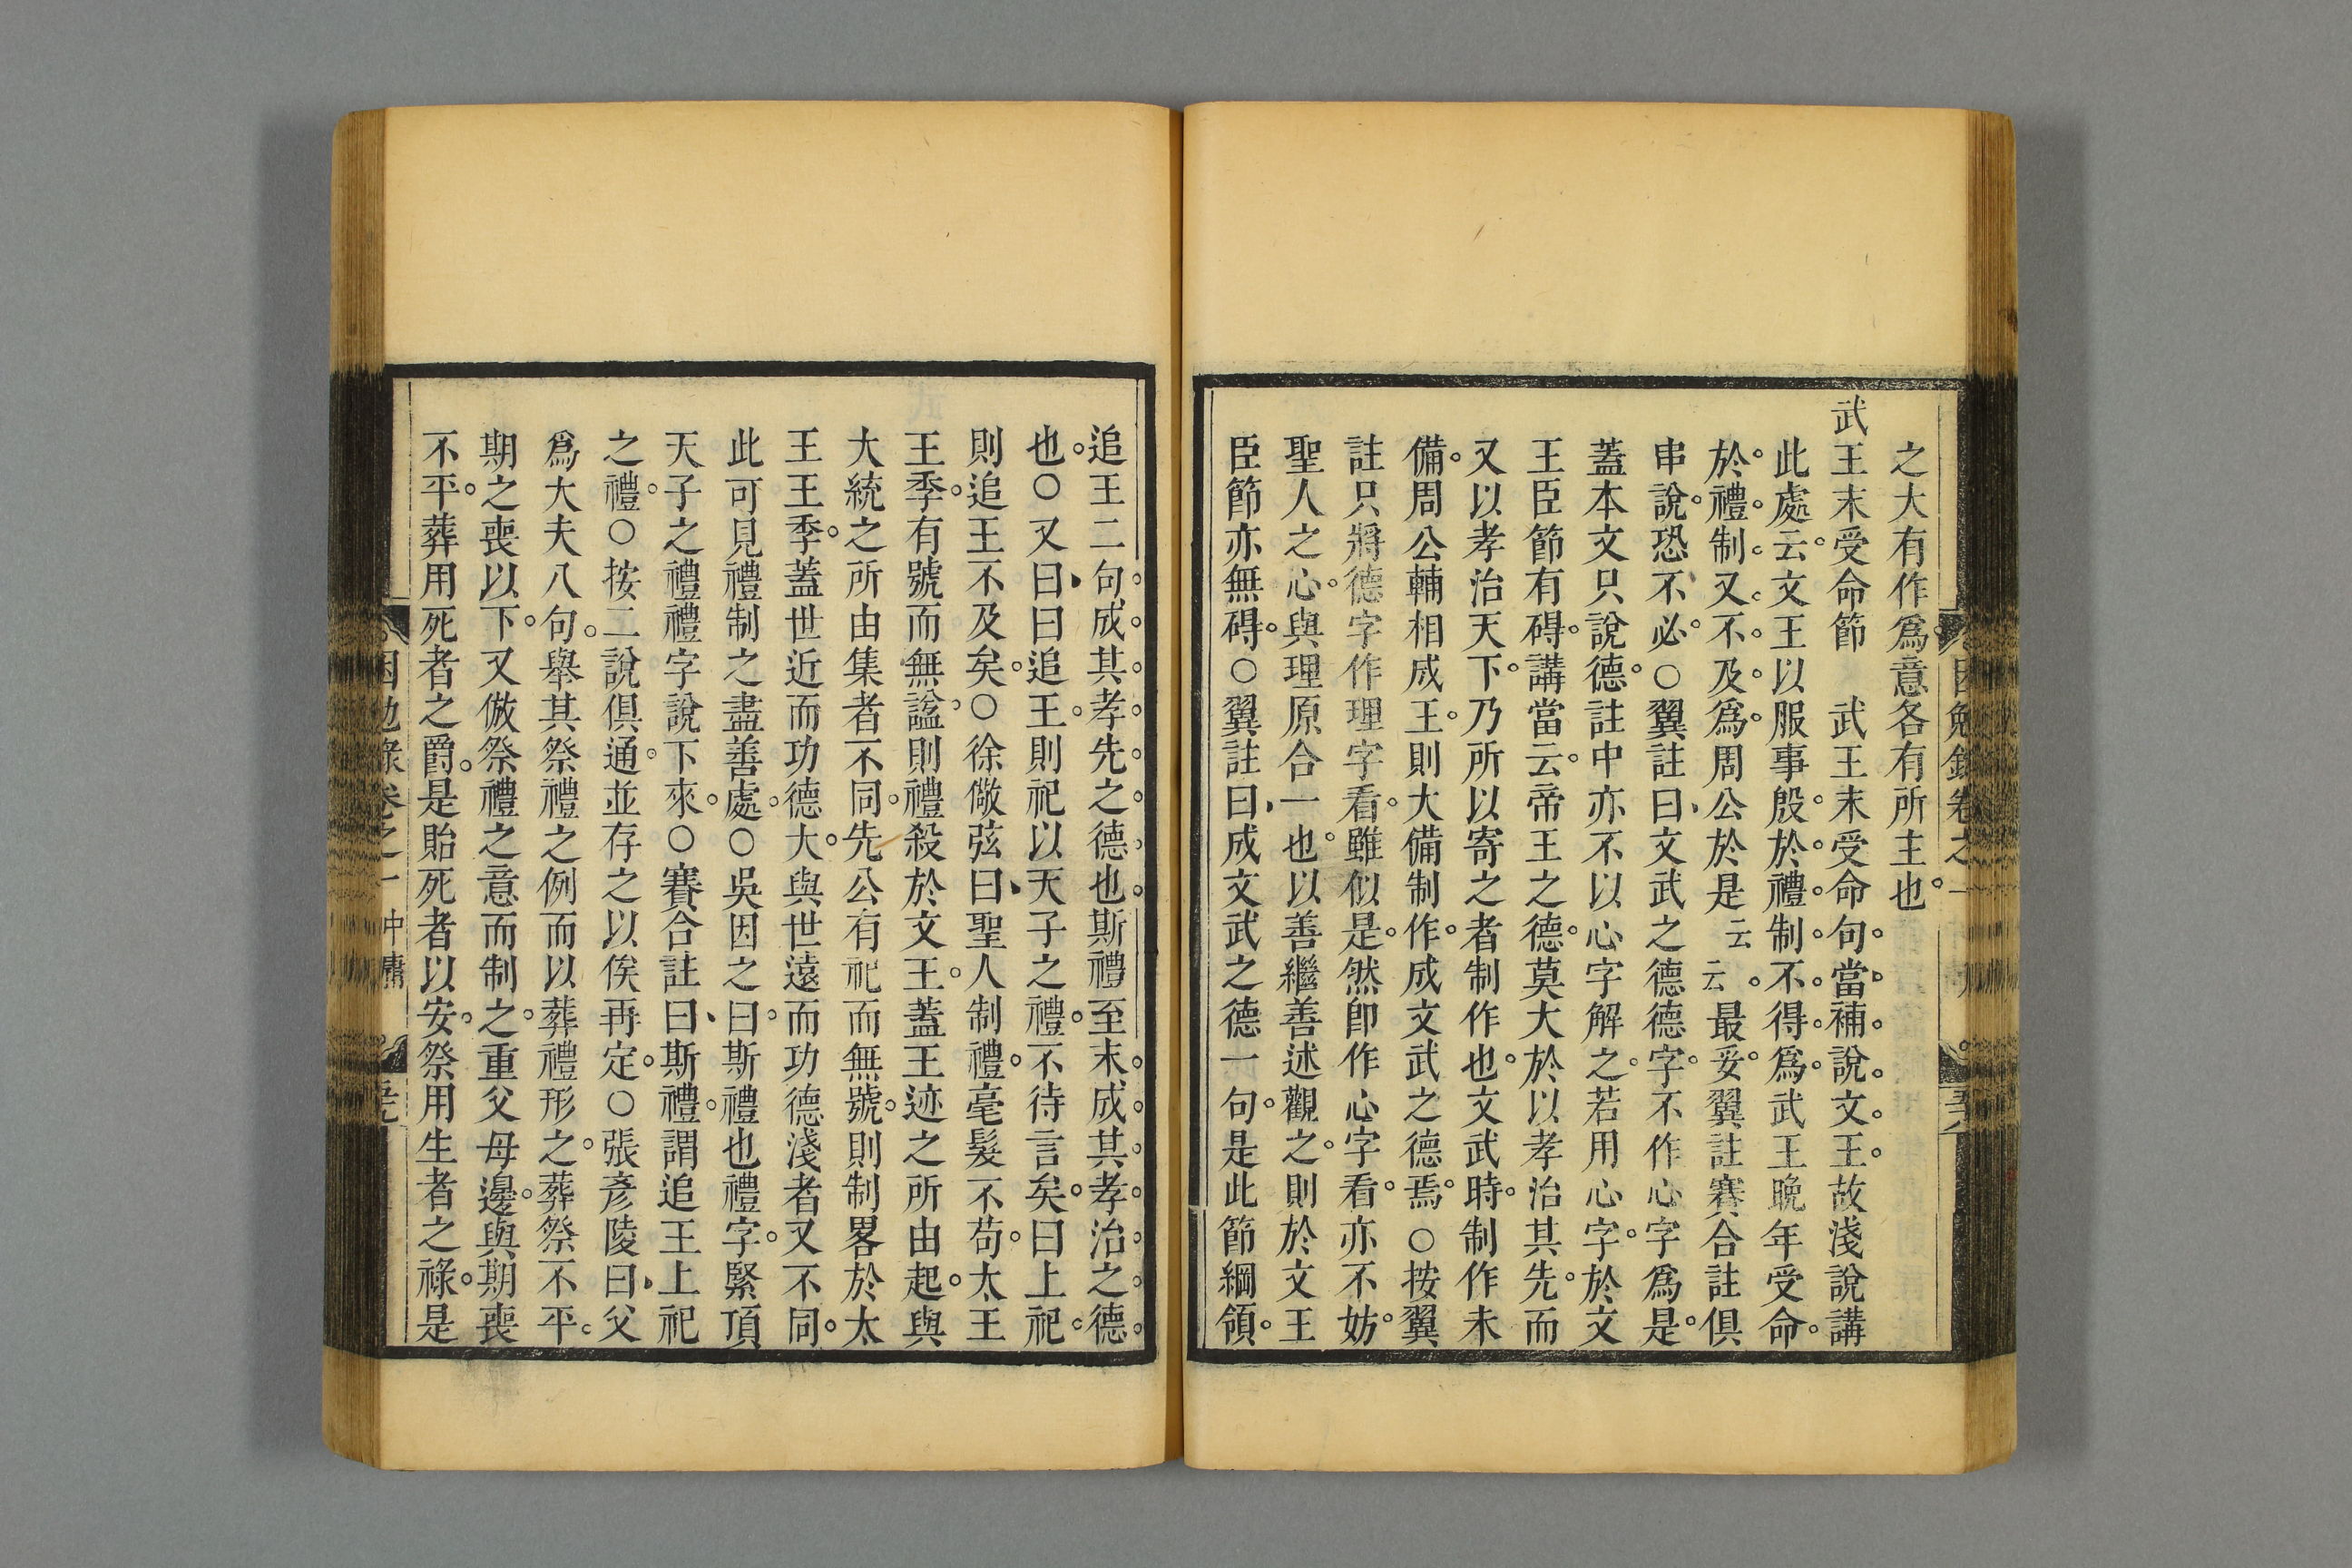 之大有作爲意各有所主也
武王末受命節　武王末受命句當補說文王故淺說講
此處云文王以服事殷於禮制不得爲武王晩年受命
於禮制又不及爲周公於是云云最妥翼註賽合註俱
串說恐不必○翼註曰文武之德德字不作心字爲是
蓋本文只說德註中亦不以心字解之若用心字於文
王臣節有碍講當云帝王之德莫大於以孝治其先而
又以孝治天下乃所以寄之者制作也文武時制作未
備周公輔相成王則大備制作成文武之德焉○按翼
註只將德字作理字看雖似是然即作心字看亦不妨
聖人之心與理原合一也以善繼善述觀之則於文王
臣節亦無碍○翼註曰成文武之德一句是此節綱領
追王二句成其孝先之德也斯禮至末成其孝治之德
也○又曰曰追王則祀以天子之禮不待言矣曰上祀
則追王不及矣○徐儆弦曰聖人制禮毫髮不苟太王
王季有號而無諡則禮殺於文王蓋王迹之所由起與
大統之所由集者不同先公有祀而無號則制畧於太
王王季蓋世近而功德大與世遠而功德淺者又不同
此可見禮制之盡善處○吳因之曰斯禮也禮字緊頂
天子之禮禮字說下來○賽合註曰斯禮謂追王上祀
之禮○按二說俱通並存之以俟再定○張彥陵曰父
爲大夫八句舉其祭禮之例而以葬禮形之葬祭不平
期之喪以下又倣祭禮之意而制之重父母邊與期喪
不平葬用死者之爵是貽死者以安祭用生者之祿是
困勉錄卷之一　中庸